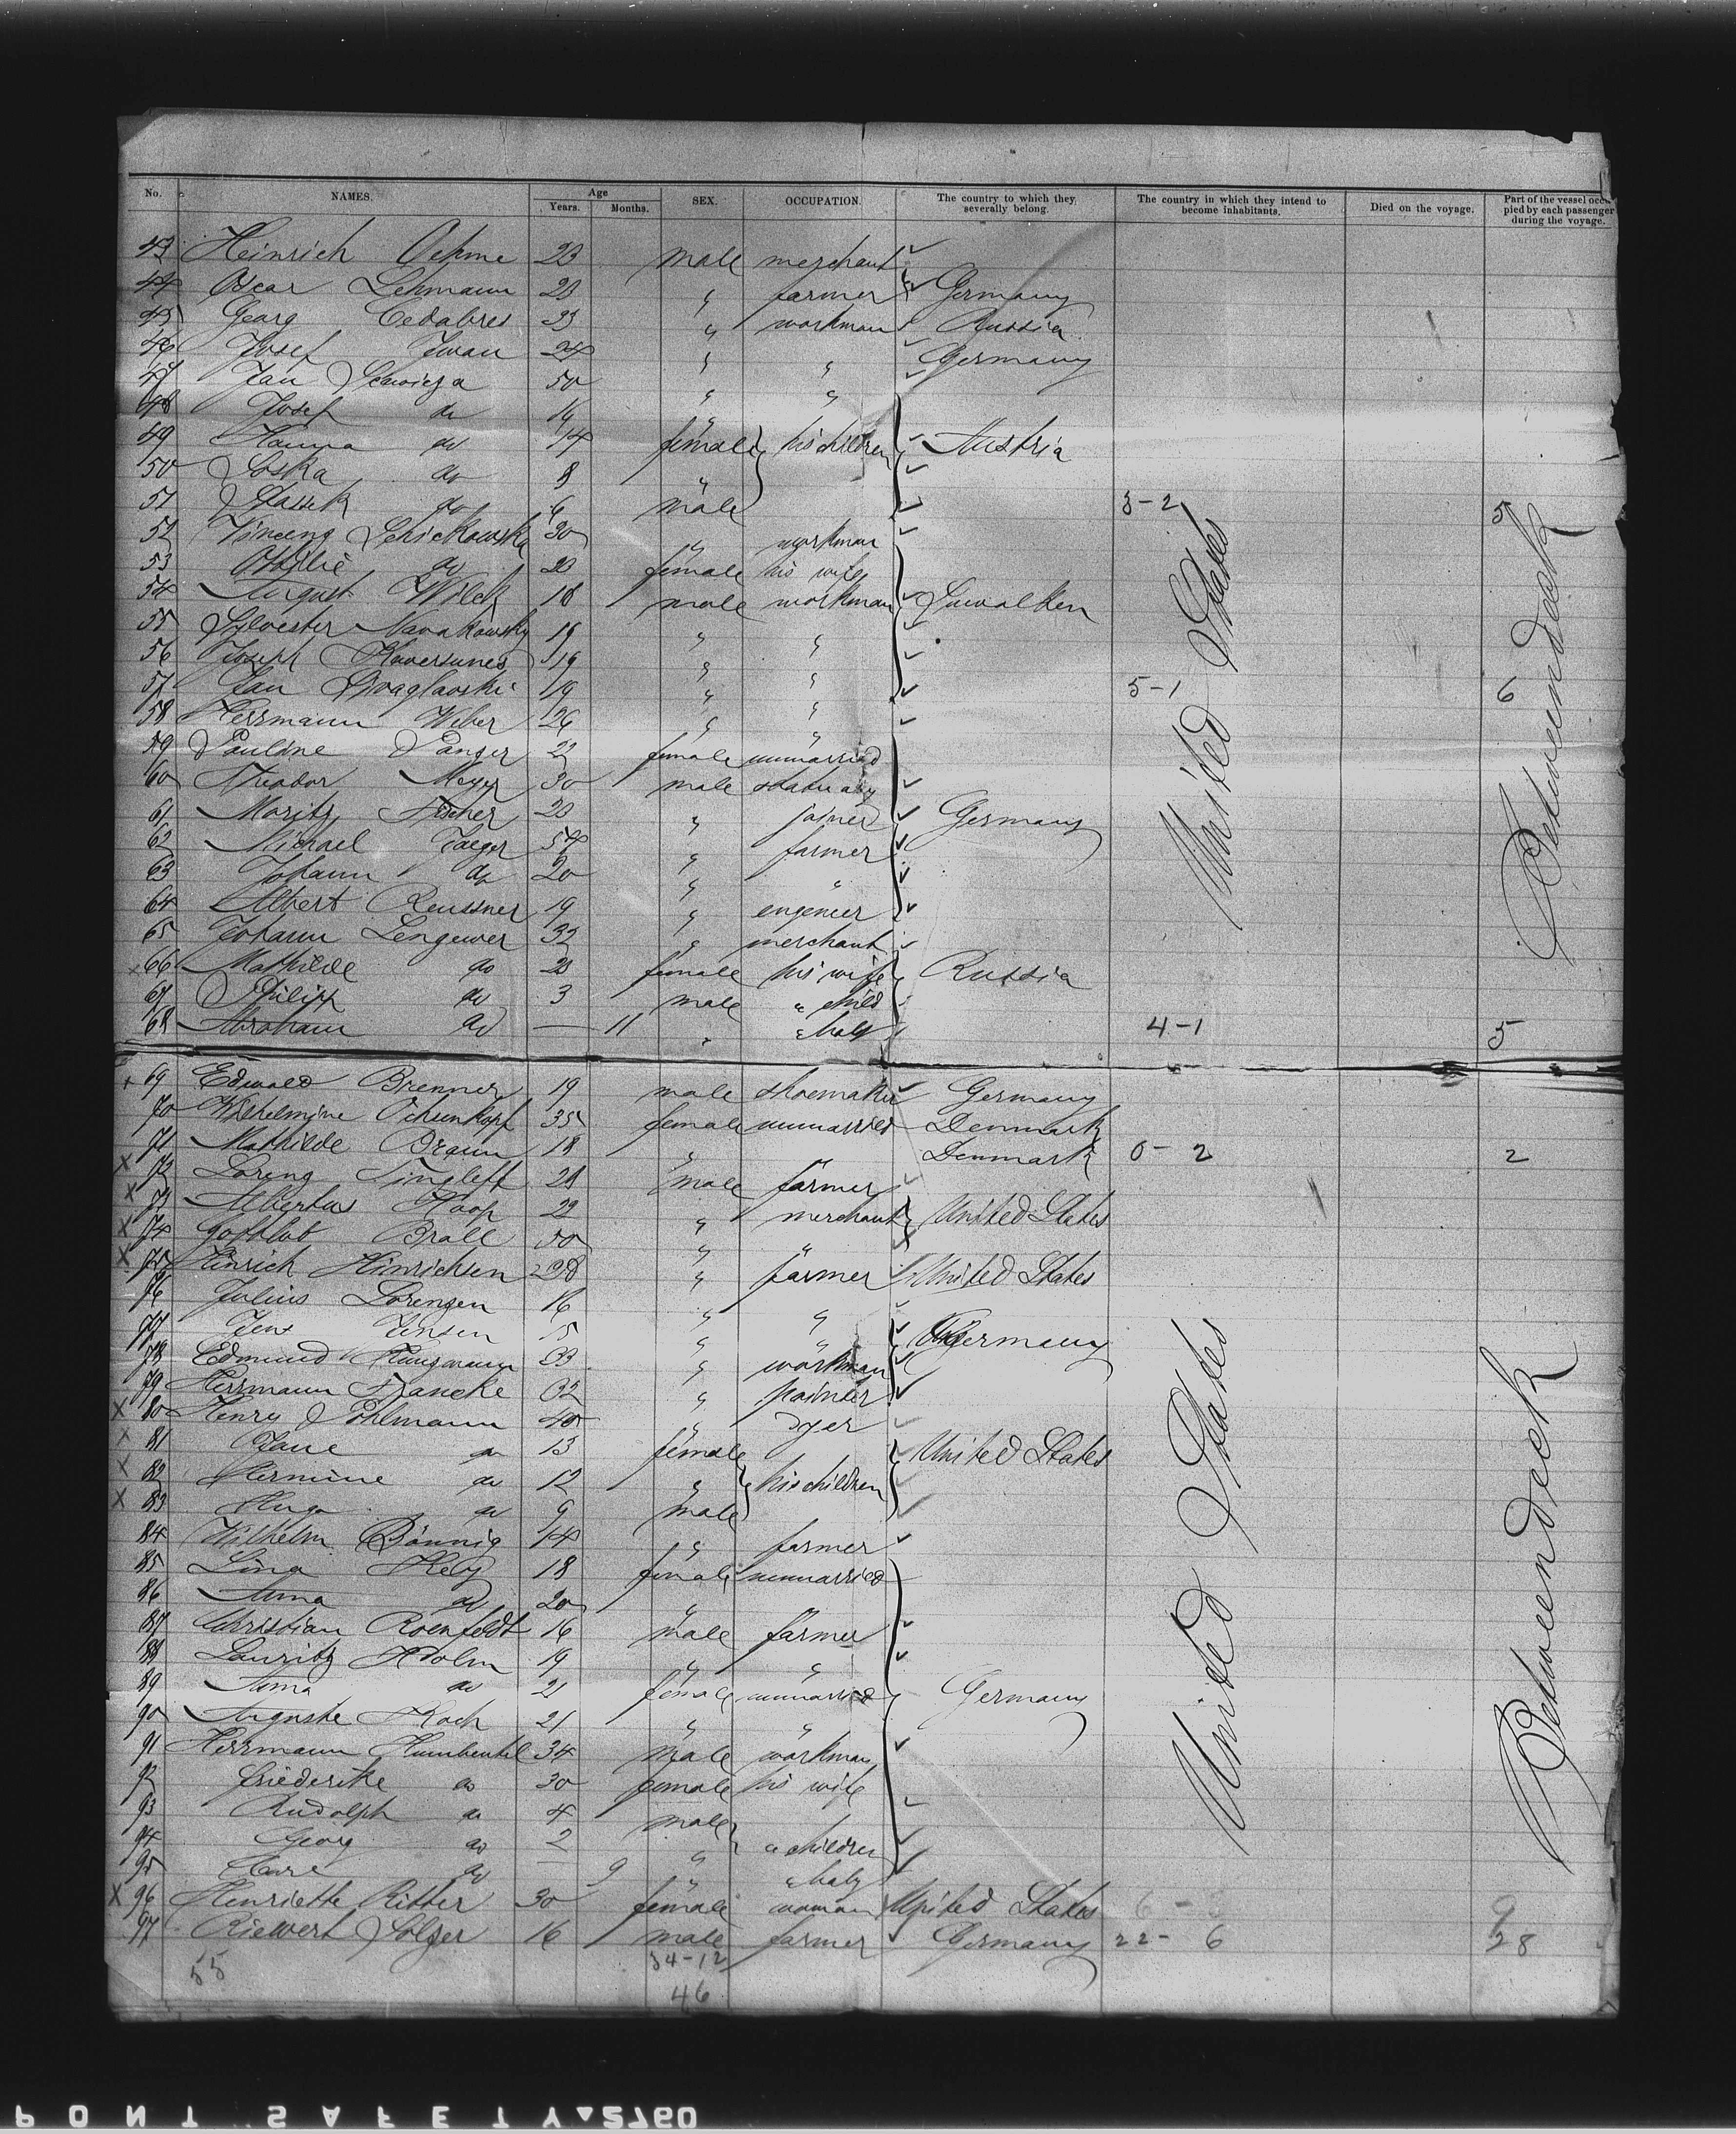 No. NAMES. Age Years. Months. SEX. OCCUPATION. The country to which they severally belong. The country in which they intend to become inhabitants. Died on the voyage. Part of the vessel occupied by each passenger during the voyage.
43 Heinrich Oehme 23 male merchant
44 Oscar Lehmann 23 " farmer Germany
45 Georg 33 " workman Russia
46 Josef Iwan 24 " " Germany
47 Jan 50 " "
48 Josef do 16 "
49 Hanna do 14 female his children Austria
50 do 8 "
51 do 6 male 3-2 5
52 30 " workman
53 Ottilie do 23 female his wife
54 August Wilck 18 male workman Suwalken
55 Sylvester Navakowsky 19 " "
56 Joseph 19 " "
57 Jan 19 " " 5-1 6
58 Herrmann Weber 26 " "
59 Pauline 22 female unmarried
60 Theodor Meyer 30 male statuary
61 Moritz Fischer 23 " joiner Germany
62 Michael Jaeger 54 " farmer
63 Johann do 20 " "
64 Albert Reussner 19 " engeneer
65 Johann Lengewer 32 " merchant
66 Mathilde do 23 female his wife Russia
67 Philipp do 3 male " child
68 Abraham do — 11 " " baby 4-1 5
United States
Betweendeck
69 Edwald Brenner 19 male shoemaker Germany
70 Wilhelmine Ochsenkopf 35 female unmarried Denmark
71 Mathilde Braun 18 " " Denmark 0-2 2
72 Lorenz Tingleff 28 male farmer
73 Albertus Koop 22 " merchant United States
74 Gottlob Brall 50 " "
75 Hinrich Hinrichsen 28 " farmer United States
76 Julius Lorenzen 16 " "
77 Jens Jensen 15 " " Germany
78 Edmund 33 " workman
79 Herrmann Francke 32 " painter
80 Henry Pohlmann 40 " dyer
81 do 13 female United States
82 Hermine do 12 " his children
83 Hugo do 9 male
84 Wilhelm Bönnig 14 " farmer
85 Lina 18 female unmarried
86 Anna do 20 " "
87 Christian Roenfeldt 16 male farmer
88 Lauritz Holm 19 " "
89 Anna do 21 female unmarried Germany
90 Auguste Koch 21 " "
91 Herrmann 34 male workman
92 Friederike do 30 female his wife
93 Rudolph do 4 male
94 Georg do 2 " " children
95 do — 9 " " baby
96 Henriette Ritter 30 female woman United States 6- 9
97 Riewert 16 male farmer Germany 22-6 28
United States
Betweendeck
55 34-12
46
PONT SAFETY 2760